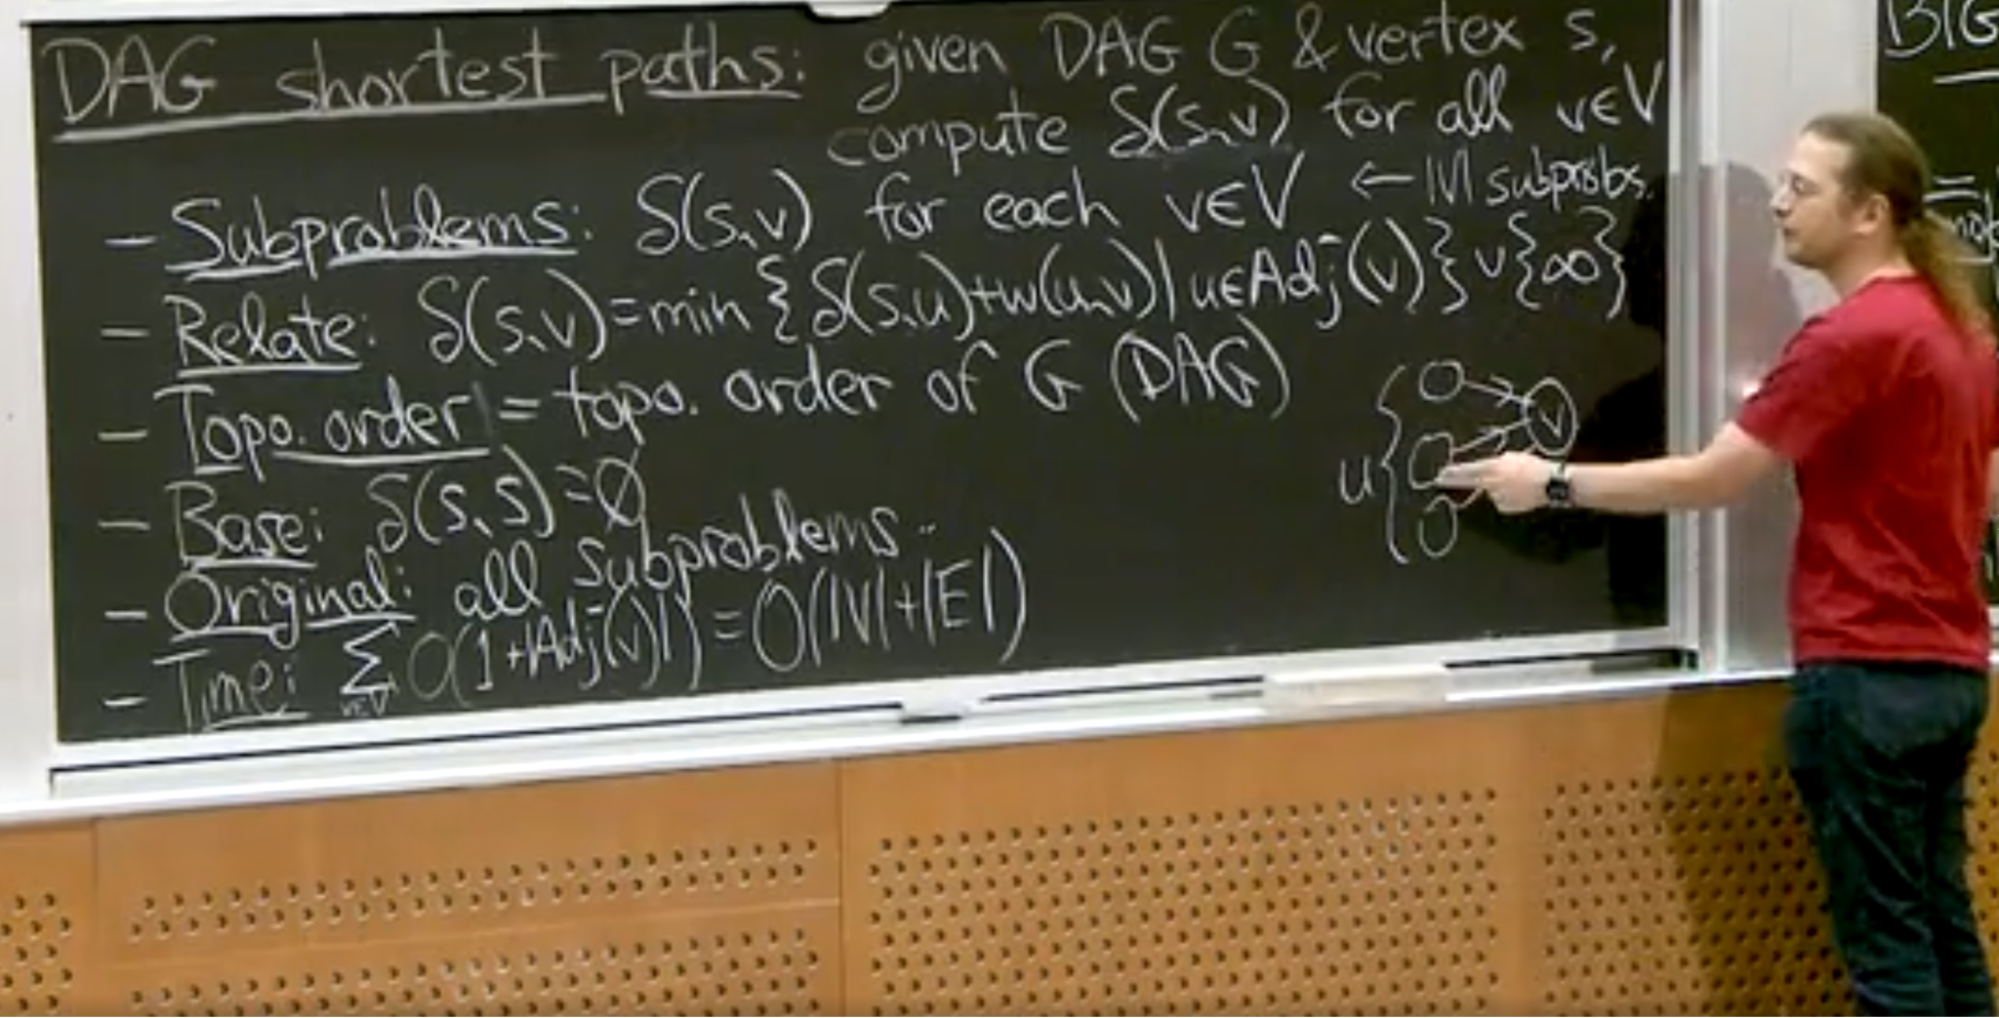 DAG shortest paths: given DAG G & vertex s,
compute δ(s,v) for all v∈V
- Subproblems: δ(s,v) for each v∈V ← |V| subprobs.
- Relate: δ(s,v)=min{δ(s,u)+w(u,v)|u∈Adj⁻(v)}∪{∞}
- Topo. order = topo. order of G (DAG)
- Base: δ(s,s)=0
- Original: all subproblems
- Time: Σ v∈V O(1+|Adj⁻(v)|) = O(|V|+|E|)
u{
v
BIG
=